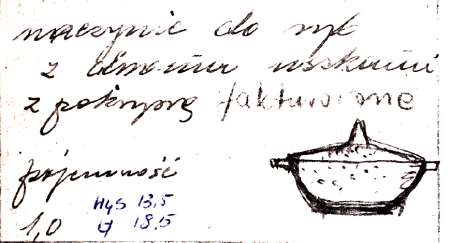 naczynie do ryb
z dwoma uszkami
z pokrywą fakturowane
pojemność
1,0 Wys 13,5
18,5